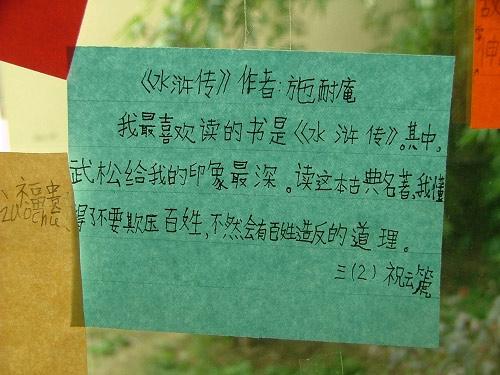 《水浒传》作者:施耐庵
我最喜欢读的书是《水浒传》。其中,
武松给我的印象最深。读这本古典名著,我懂
得了不要欺压百姓,不然会有百姓造反的道理。
三(2) 祝云篪